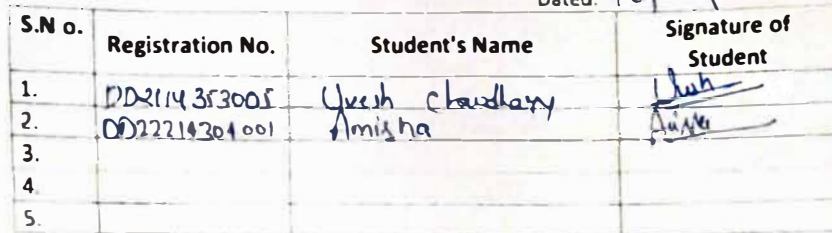 Dated:
S.No. Registration No. Student's Name Signature of Student
1. DD2114353005 Chaudhary
2. DD22214301001 Amisha
3.
4.
5.